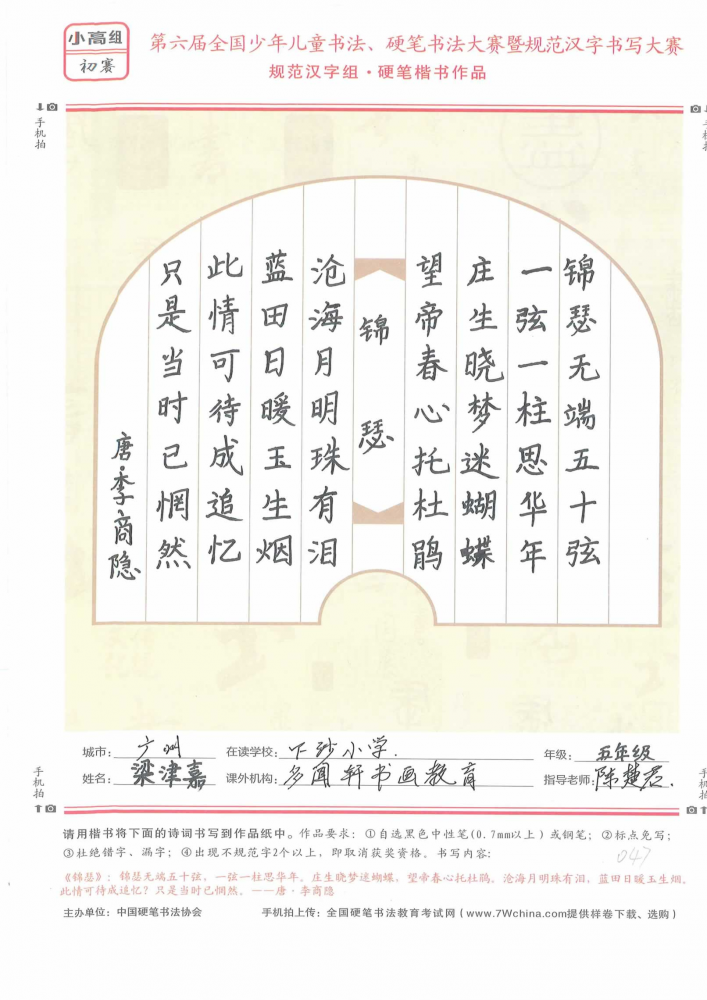 小高组
初赛
第六届全国少年儿童书法、硬笔书法大赛暨规范汉字书写大赛
规范汉字组·硬笔楷书作品
手机拍
锦瑟无端五十弦
一弦一柱思华年
庄生晓梦迷蝴蝶
望帝春心托杜鹃
锦瑟
沧海月明珠有泪
蓝田日暖玉生烟
此情可待成追忆
只是当时已惘然
唐·李商隐
城市：广州 在读学校：下沙小学. 年级：五年级
姓名：梁津嘉 课外机构：多闻轩书画教育 指导老师：陈楚君.
手机拍
手机拍
请用楷书将下面的诗词书写到作品纸中。作品要求：①自选黑色中性笔(0.7mm以上）或钢笔；②标点免写；
③杜绝错字、漏字；④出现不规范字2个以上，即取消获奖资格。书写内容：
047
《锦瑟》：锦瑟无端五十弦，一弦一柱思华年。庄生晓梦迷蝴蝶，望帝春心托杜鹃。沧海月明珠有泪，蓝田日暖玉生烟。
此情可待成追忆？只是当时已惘然。——唐·李商隐
主办单位：中国硬笔书法协会 手机拍上传：全国硬笔书法教育考试网（www.7Wchina.com提供样卷下载、选购）